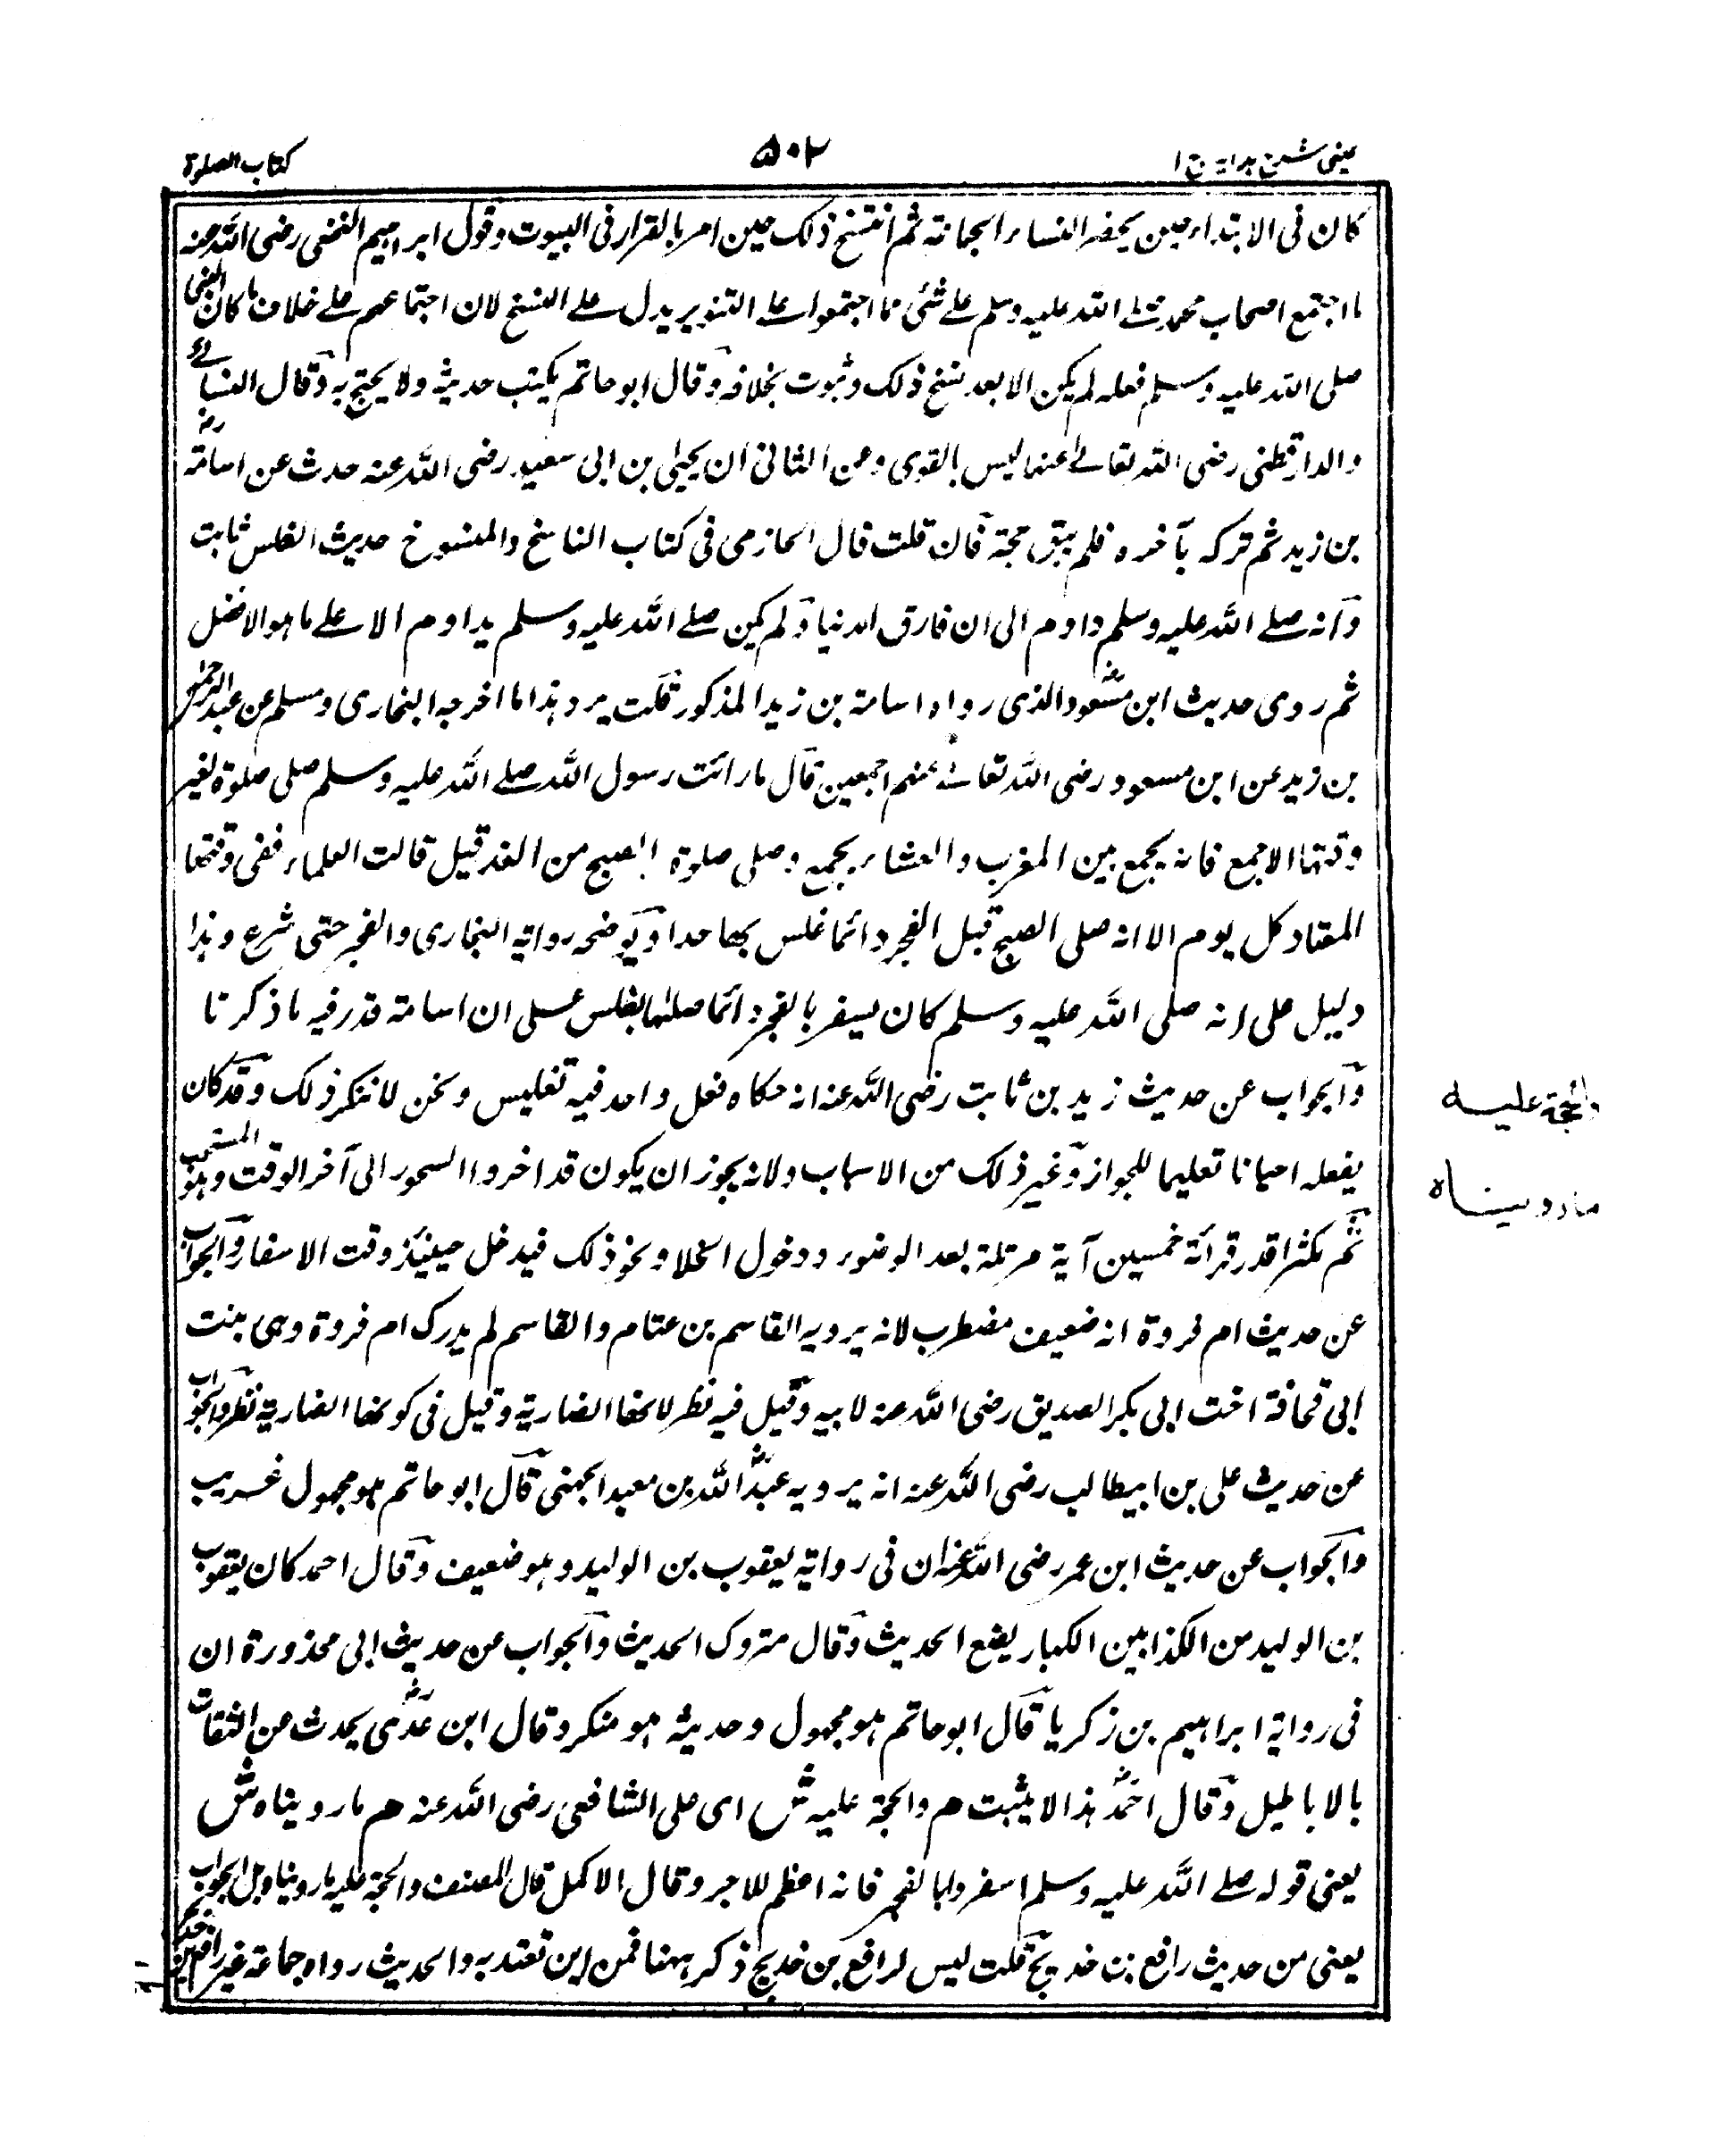 عینی شرح ہدایہ ج ۱
۵۰۲
كتاب الصلوة
كان فى الابتداء حين يحضر النساء الجماعة ثم انتسخ ذلك حين امر بالقرار فى البيوت وقول ابراهيم النخعى رضى الله عنه
ما اجتمع اصحاب محمد صلے الله عليه وسلم علے شئى ما اجتمعوا علے التنوير يدل علے النسخ لان اجتماعهم علے خلاف ما كان النبى
صلى الله عليه وسلم فعله لم يكن الا بعد نسخ ذلك وثبوت بخلافه وقال ابو حاتم يكتب حديثه ولا يحتج به وقال النسائے
والدارقطنى رضى الله تعالے عنهما ليس بالقوى وعن الثانى ان يحيى بن ابى سعيد رضى الله عنه حدث عن اسامة
بن زيد ثم تركه بآخره فلم يبق حجة فان قلت قال الحازمى فى كتاب الناسخ والمنسوخ حديث الغلس ثابت
وانه صلے الله عليه وسلم داوم الى ان فارق الدنيا ولم يكن صلے الله عليه وسلم يداوم الا علے ما هو الافضل
ثم روى حديث ابن مسعود الذى رواه اسامة بن زيد المذكور قلت يرد هذا ما اخرجه البخارى ومسلم عن عبد الرحمن
بن زيد عن ابن مسعود رضى الله تعالے عنهم اجمعين قال ما رائت رسول الله صلے الله عليه وسلم صلى صلوة لغير
وقتها الا بجمع فانه يجمع بين المغرب والعشاء بجمع وصلى صلوة الصبح من الغد قبل قالت العلماء ففى وقتها
المعتاد كل يوم الا انه صلى الصبح قبل الفجر دائما غلس بها حدا ويوضحه رواية البخارى والفجر حتى شرع وهذا
دليل على انه صلى الله عليه وسلم كان يسفر بالفجر دائما صلها بغلس على ان اسامة قدر فيه ما ذكرنا
والجواب عن حديث زيد بن ثابت رضى الله عنه انه حكاه فعل واحد فيه تغليس ونحن لا ننكر ذلك وقد كان
يفعله احيانا تعليما للجواز وغير ذلك من الاسباب ولانه يجوز ان يكون قد اخروا السحور الى آخر الوقت وهو المستحب
ثم مكثرا قدر قرائة خمسين آية مرتلة بعد الوضوء ودخول الخلاء ونحو ذلك فيدخل حينئذ وقت الاسفار والجواب
عن حديث ام فروة انه ضعيف مضطرب لانه يرويه القاسم بن عتام والقاسم لم يدرك ام فروة وهى بنت
ابى قحافة اخت ابى بكر الصديق رضى الله عنه لابيه وقيل فيه نظر لانها انصارية وقيل فى كونها انصارية نظر والجواب
عن حديث على بن ابيطالب رضى الله عنه انه يرويه عبد الله بن معبد الجهنى قال ابو حاتم هو مجهول غريب
والجواب عن حديث ابن عمر رضى الله عنه ان فى رواية يعقوب بن الوليد وهو ضعيف وقال احمد كان يعقوب
بن الوليد من الكذابين الكبار يضع الحديث وقال متروك الحديث والجواب عن حديث ابى محذورة ان
فى رواية ابراهيم بن زكريا قال ابو حاتم هو مجهول وحديثه هو منكر وقال ابن عدى يحدث عن الثقات
بالاباطيل وقال احمد هذا لا يثبت م والحجة عليه ش اى على الشافعى رضى الله عنه م ما رويناه ش
يعنى قوله صلے الله عليه وسلم اسفروا بالفجر فانه اعظم للاجر وقال الاكمل قال المصنف والحجة عليه ما روينا وهل الجواب
يعنى من حديث رافع بن خديج قلت ليس لرافع بن خديج ذكر ههنا فمن اين تعتد به والحديث رواه جماعة غير رافع بن خديج
والحجة عليه
ما رويناه